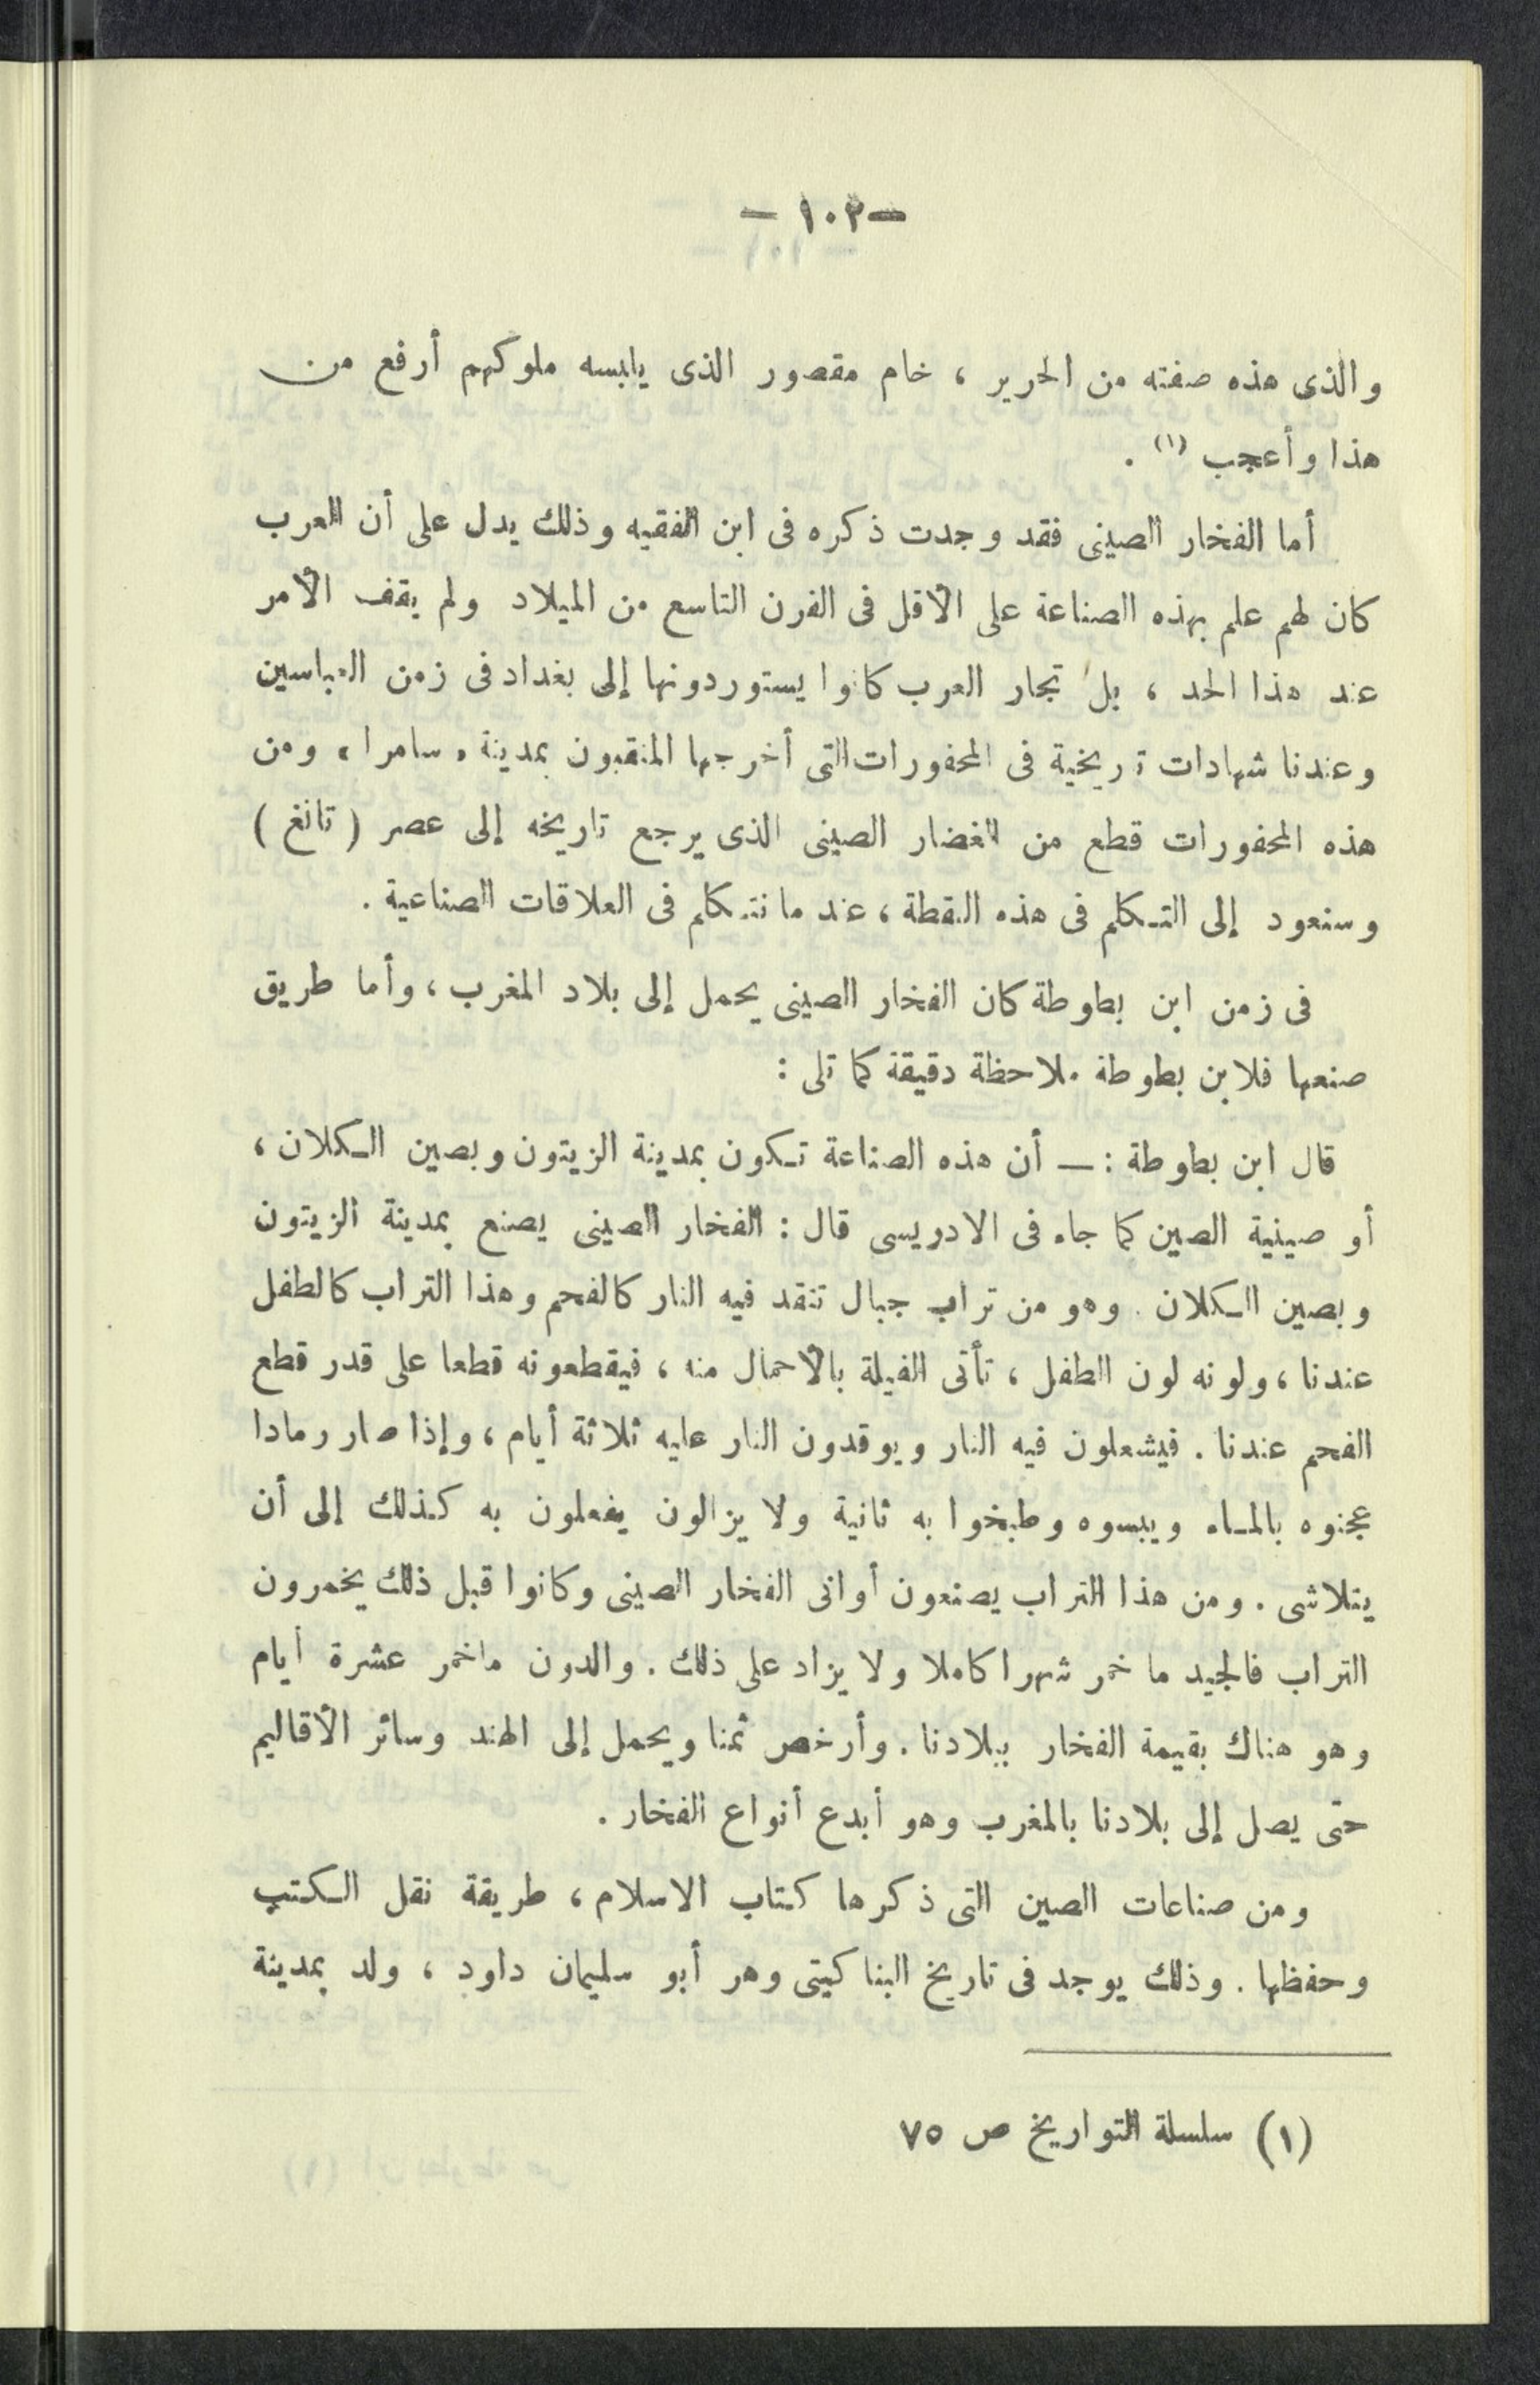 — ١٠٢ —
والذى هذه صفته من الحرير ، خام مقصور الذى يلبسه ملوكهم أرفع من
هذا وأعجب (١) .
أما الفخار الصينى فقد وجدت ذكره فى ابن الفقيه وذلك يدل على أن العرب
كان لهم علم بهذه الصناعة على الأقل فى القرن التاسع من الميلاد ولم يقف الأمر
عند هذا الحد ، بل تجار العرب كانوا يستوردونها إلى بغداد فى زمن العباسين
وعندنا شهادات تريخية فى المحفورات التى أخرجها المنقبون بمدينة « سامرا » ومن
هذه المحفورات قطع من الغضار الصينى الذى يرجع تاريخه إلى عصر ( تانغ )
وسنعود إلى التكلم فى هذه النقطة ، عند ما نتكلم فى العلاقات الصناعية .
فى زمن ابن بطوطة كان الفخار الصينى يحمل إلى بلاد المغرب ، وأما طريق
صنعها فلابن بطوطة ملاحظة دقيقة كما تلى :
قال ابن بطوطة : — أن هذه الصناعة تكون بمدينة الزيتون وبصين الكلان ،
أو صينية الصين كما جاء فى الادريسى قال : الفخار الصينى يصنع بمدينة الزيتون
وبصين الكلان . وهو من تراب جبال تنقد فيه النار كالفحم وهذا التراب كالطفل
عندنا ، ولونه لون الطفل ، تأتى الفيلة بالأحمال منه ، فيقطعونه قطعا على قدر قطع
الفحم عندنا . فيشعلون فيه النار ويوقدون النار عليه ثلاثة أيام ، وإذا صار رمادا
عجنوه بالماء ويبسوه وطبخوا به ثانية ولا يزالون يفعلون به كذلك إلى أن
يتلاشى . ومن هذا التراب يصنعون أوانى الفخار الصينى وكانوا قبل ذلك يخمرون
التراب فالجيد ما خمر شهرا كاملا ولا يزاد على ذلك . والدون ماخمر عشرة أيام
وهو هناك بقيمة الفخار ببلادنا . وأرخص ثمنا ويحمل إلى الهند وسائر الأقاليم
حتى يصل إلى بلادنا بالمغرب وهو أبدع أنواع الفخار .
ومن صناعات الصين التى ذكرها كتاب الاسلام ، طريقة نقل الكتب
وحفظها . وذلك يوجد فى تاريخ البناكيتى وهر أبو سليمان داود ، ولد بمدينة
(١) سلسلة التواريخ ص ٧٥